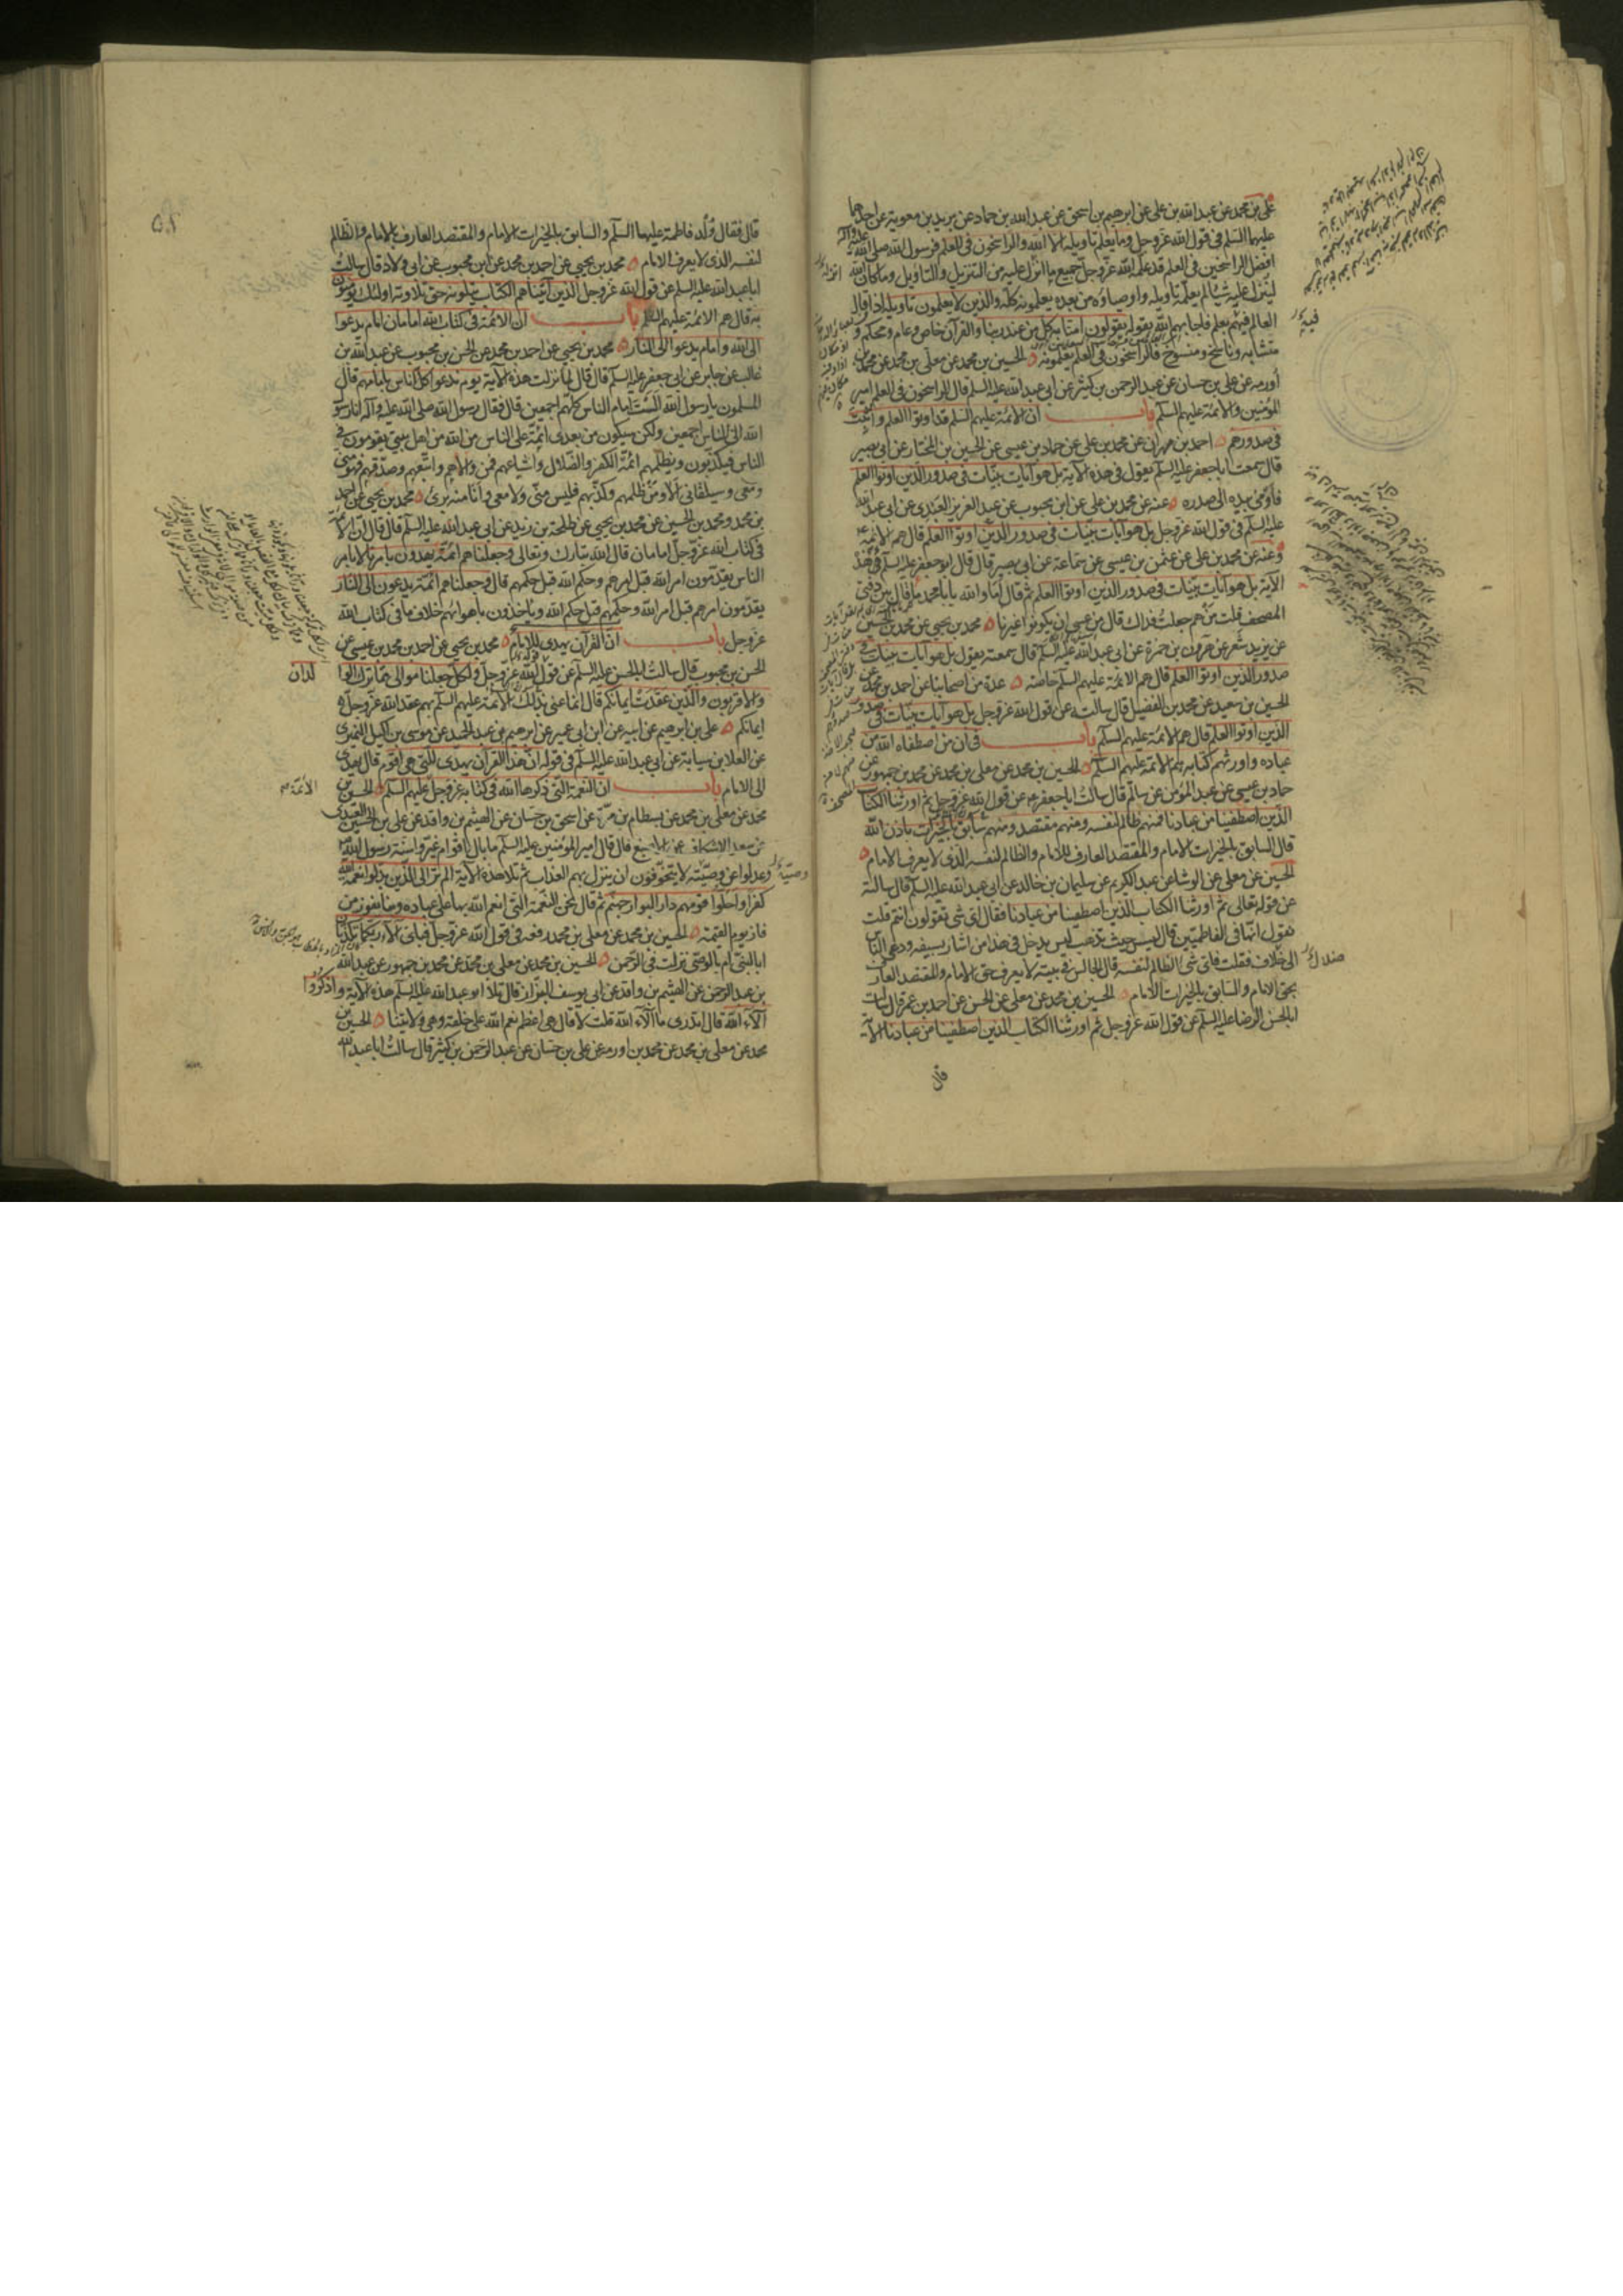 علي بن محمد عن عبدالله بن علي عن ابرهيم بن اسحق عن عبدالله بن حماد عن بريد بن معوية عن احدهما
عليهما السلم في قول الله عز وجل وما يعلم تاويله الا الله والراسخون في العلم فرسول الله صلى الله عليه وآله
افضل الراسخين في العلم قد علمه الله عز وجل جميع ما انزل عليه من التنزيل والتاويل وما كان الله
لينزل عليه شيئا لم يعلمه تاويله واوصياؤه من بعده يعلمونه كله والذين لا يعلمون تاويله اذا قال
العالم فيهم بعلم فاجابهم الله بقوله يقولون امنا به كل من عند ربنا والقرآن خاص وعام ومحكم و
متشابه وناسخ ومنسوخ فالراسخون في العلم يعلمونه الحسين بن محمد عن معلى بن محمد عن محمد بن
أورمه عن علي بن حسان عن عبد الرحمن بن كثير عن ابي عبدالله عليه السلم قال الراسخون في العلم امير
المؤمنين والائمة عليهم السلم باب ان الائمة عليهم السلم قد اوتوا العلم واثبت
في صدورهم احمد بن مهران عن محمد بن علي عن حماد بن عيسى عن الحسين بن المختار عن ابي بصير
قال سمعت ابا جعفر عليه السلم يقول في هذه الآية بل هو آيات بينات في صدور الذين اوتوا العلم
فاومى بيده الى صدره عنه عن محمد بن علي عن ابن محبوب عن عبد العزيز العبدي عن ابي عبدالله
عليه السلم في قول الله عز وجل بل هو آيات بينات في صدور الذين اوتوا العلم قال هم الائمة
وعنه عن محمد بن علي عن عثمن بن عيسى عن سماعة عن ابي بصير قال قال ابو جعفر عليه السلم في هذه
الآية بل هو آيات بينات في صدور الذين اوتوا العلم ثم قال اما والله يا با محمد ما قال بين دفتي
المصحف قلت من هم جعلت فداك قال من عسى ان يكونوا غيرنا محمد بن يحيى عن محمد بن الحسين
عن يزيد شعر عن هرون بن حمزة عن ابي عبد الله عليه السلم قال سمعته يقول بل هو آيات بينات في
صدور الذين اوتوا العلم قال هم الائمة عليهم السلم خاصة عدة من اصحابنا عن احمد بن محمد عن
الحسين بن سعيد عن محمد بن الفضيل قال سالته عن قول الله عز وجل بل هو آيات بينات في صدور
الذين اوتوا العلم قال هم الائمة عليهم السلم باب في ان من اصطفاه الله من
عباده واورثهم كتابه هم الائمة عليهم السلم الحسين بن محمد عن معلى بن محمد عن محمد بن جمهور عن
حماد بن عيسى عن عبد المؤمن عن سالم قال سالت ابا جعفر عن قول الله عز وجل ثم اورثنا الكتاب
الذين اصطفينا من عبادنا فمنهم ظالم لنفسه ومنهم مقتصد ومنهم سابق بالخيرات باذن الله
قال السابق بالخيرات الامام والمقتصد العارف للامام والظالم لنفسه الذي لا يعرف الامام
الحسين عن معلى عن الوشا عن عبد الكريم عن سليمان بن خالد عن ابي عبد الله عليه السلم قال سالته
عن قوله تعالى ثم اورثنا الكتاب الذين اصطفينا من عبادنا فقال اي شي تقولون انتم قلت
نقول انها في الفاطميين قال ليس حيث تذهب ليس يدخل في هذا من اشار بسيفه ودعى الناس
الى خلاف فقلت فاي شئ الظالم لنفسه قال الجالس في بيته لا يعرف حق الامام والمقتصد العارف
بحق الامام والسابق بالخيرات الامام الحسين بن محمد عن معلى عن الحسن عن احمد بن عمر قال سالت
ابا الحسن الرضا عليه السلم عن قول الله عز وجل ثم اورثنا الكتاب الذين اصطفينا من عبادنا الآية
قال
قال فقال ولد فاطمة عليهما السلم والسابق بالخيرات الامام والمقتصد العارف بالامام والظالم
لنفسه الذي لا يعرف الامام محمد بن يحيى عن احمد بن محمد عن ابن محبوب عن ابي ولاد قال سالت
ابا عبد الله عليه السلم عن قول الله عز وجل الذين آتيناهم الكتاب يتلونه حق تلاوته اولئك يؤمنون
به قال هم الائمة عليهم السلم باب ان الائمة في كتاب الله امامان امام يدعوا
الى الله وامام يدعوا الى النار محمد بن يحيى عن احمد بن محمد عن الحسن بن محبوب عن عبدالله بن
غالب عن جابر عن ابي جعفر عليه السلم قال قال لما نزلت هذه الآية يوم ندعوا كل اناس بامامهم قال
المسلمون يا رسول الله الست امام الناس كلهم اجمعين قال فقال رسول الله صلى الله عليه وآله انا رسول
الله الى الناس اجمعين ولكن سيكون من بعدي ائمة على الناس من الله من اهل بيتي يقومون في
الناس فيكذبون ويظلمهم ائمة الكفر والضلال واشياعهم فمن والاهم واتبعهم وصدقهم فهو مني
ومعي وسيلقاني الا ومن ظلمهم وكذبهم فليس مني ولا معي وانا منه برئ محمد بن يحيى عن احمد
بن محمد ومحمد بن الحسين عن محمد بن يحيى عن طلحة بن زيد عن ابي عبد الله عليه السلم قال قال ان الائمة
في كتاب الله عز وجل امامان قال الله تبارك وتعالى وجعلناهم ائمة يهدون بامرنا لا بامر
الناس يقدمون امر الله قبل امرهم وحكم الله قبل حكمهم قال وجعلناهم ائمة يدعون الى النار
يقدمون امرهم قبل امر الله وحكمهم قبل حكم الله وياخذون باهوائهم خلاف ما في كتاب الله
عز وجل باب ان القرآن يهدي للامام محمد بن يحيى عن احمد بن محمد بن عيسى عن
الحسن بن محبوب قال سالت ابا الحسن عليه السلم عن قول الله عز وجل ولكل جعلنا موالي مما ترك الوالدان
والاقربون والذين عقدت ايمانكم قال انما عنى بذلك الائمة عليهم السلم بهم عقد الله عز وجل
ايمانكم علي بن ابرهيم عن ابيه عن ابن ابي عمير عن ابرهيم بن عبد الحميد عن موسى بن اكيل النميري
عن العلا بن سيابة عن ابي عبد الله عليه السلم في قوله ان هذا القرآن يهدي للتي هي اقوم قال يهدي
الى الامام باب ان النعمة التي ذكرها الله في كتابه عز وجل الائمة عليهم السلم الحسين بن
محمد عن معلى بن محمد عن بسطام بن مرة عن اسحق بن حسان عن الهيثم بن واقد عن علي بن الحسين العبدي
عن سعد الاسكاف عن الاصبغ قال قال امير المؤمنين عليه السلم ما بال اقوام غيروا سنة رسول الله
وعدلوا عن وصيته لا يتخوفون ان ينزل بهم العذاب ثم تلا هذه الآية الم تر الى الذين بدلوا نعمة الله
كفرا واحلوا قومهم دار البوار جهنم ثم قال نحن النعمة التي انعم الله بها على عباده وبنا يفوز من
فاز يوم القيمة الحسين بن محمد عن معلى بن محمد رفعه في قول الله عز وجل فباي آلاء ربكما تكذبان
ابا لنبي ام بالوصي نزلت في الرحمن الحسين بن محمد عن معلى بن محمد عن محمد بن جمهور عن عبد الله
بن عبد الرحمن عن الهيثم بن واقد عن ابي يوسف البزاز قال تلا ابو عبد الله عليه السلم هذه الآية واذكروا
آلاء الله قال اتدري ما آلاء الله قلت لا قال هي اعظم نعم الله على خلقه وهي ولايتنا الحسين بن
محمد عن معلى بن محمد عن محمد بن اورمه عن علي بن حسان عن عبد الرحمن بن كثير قال سالت ابا عبد الله